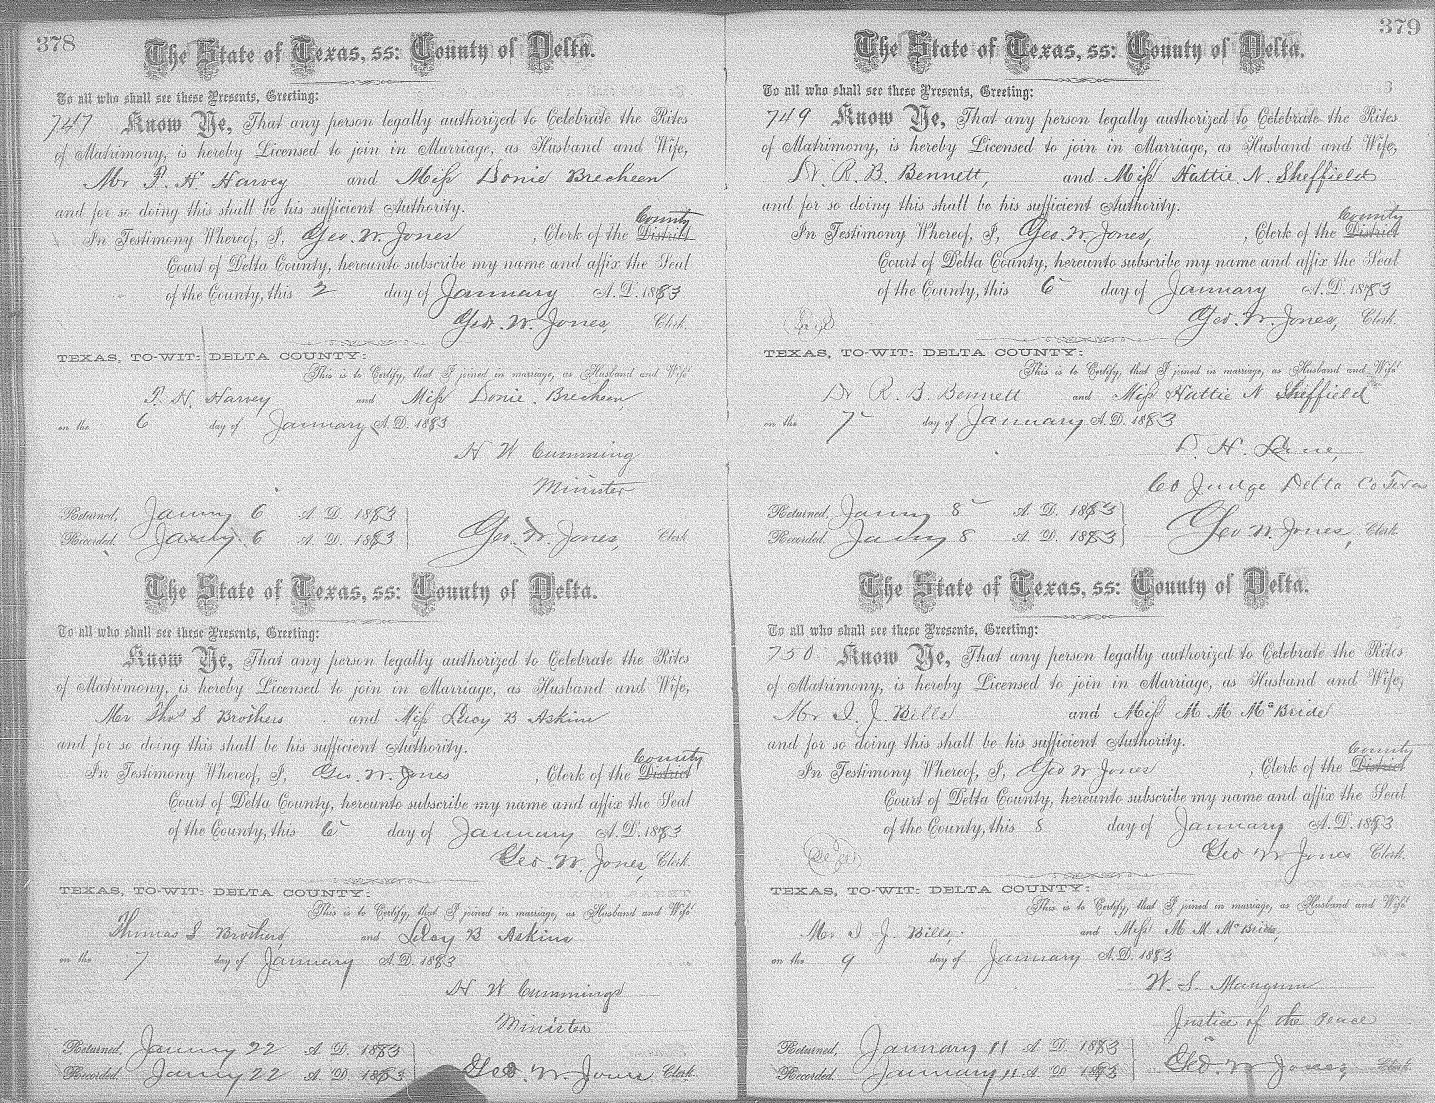 378
The State of Texas, ss: County of Delta.
To all who shall see these Presents, Greeting:
747 Know Ye, That any person legally authorized to Celebrate the Rites
of Matrimony, is hereby Licensed to join in Marriage, as Husband and Wife,
Mr F. H. Harvey and Miss Donie Brecheen
and for so doing this shall be his sufficient Authority.
County
In Testimony Whereof, I, Geo. W. Jones , Clerk of the District
Court of Delta County, hereunto subscribe my name and affix the Seal
of the County, this 2 day of January A.D. 1883
Geo. W. Jones, Clerk.
TEXAS, TO-WIT: DELTA COUNTY:
This is to Certify, that I joined in marriage, as Husband and Wife
F. H. Harvey and Miss Donie Brecheen,
on the 6 day of January A.D. 1883
H W Cumming
Minister
Returned, Janry 6 A. D. 1883
Recorded, Janry 6 A. D. 1883 Geo. W. Jones, Clerk
The State of Texas, ss: County of Delta.
To all who shall see these Presents, Greeting:
Know Ye, That any person legally authorized to Celebrate the Rites
of Matrimony, is hereby Licensed to join in Marriage, as Husband and Wife,
Mr Thos S Brothers and Miss Leroy B Askins
and for so doing this shall be his sufficient Authority.
County
In Testimony Whereof, I, Geo. W. Jones , Clerk of the District
Court of Delta County, hereunto subscribe my name and affix the Seal
of the County, this 6 day of January A.D. 1883
Geo. W. Jones, Clerk.
TEXAS, TO-WIT: DELTA COUNTY:
This is to Certify, that I joined in marriage, as Husband and Wife
Thomas S Brothers, and Leroy B Askins
on the 7 day of January A.D. 1883
H W Cummings
Minister
Returned, Janry 22 A. D. 1883
Recorded, Janry 22 A. D. 1883 Geo. W. Jones Clerk
379
The State of Texas, ss: County of Delta.
To all who shall see these Presents, Greeting:
749 Know Ye, That any person legally authorized to Celebrate the Rites
of Matrimony, is hereby Licensed to join in Marriage, as Husband and Wife,
Dr. R. B. Bennett, and Miss Hattie N. Sheffield
and for so doing this shall be his sufficient Authority.
County
In Testimony Whereof, I, Geo. W. Jones, , Clerk of the District
Court of Delta County, hereunto subscribe my name and affix the Seal
of the County, this 6 day of January A.D. 1883
Geo. W. Jones, Clerk.
TEXAS, TO-WIT: DELTA COUNTY:
This is to Certify, that I joined in marriage, as Husband and Wife
Dr R. B. Bennett and Miss Hattie N Sheffield
on the 7 day of January A.D. 1883
H.
Co Judge Delta Co Texas
Returned, Janry 8 A. D. 1883
Recorded, Janry 8 A. D. 1883 Geo W. Jones, Clerk
The State of Texas, ss: County of Delta.
To all who shall see these Presents, Greeting:
750 Know Ye, That any person legally authorized to Celebrate the Rites
of Matrimony, is hereby Licensed to join in Marriage, as Husband and Wife,
Mr I. J. Bills and Miss M M McBride
and for so doing this shall be his sufficient Authority.
County
In Testimony Whereof, I, Geo W Jones , Clerk of the District
Court of Delta County, hereunto subscribe my name and affix the Seal
of the County, this 8 day of January A.D. 1883
Geo W Jones Clerk.
TEXAS, TO-WIT: DELTA COUNTY:
This is to Certify, that I joined in marriage, as Husband and Wife
Mr I J Bills, and Miss M M McBride,
on the 9 day of January A.D. 1883
W. S. Mangum
Justice of the Peace
Returned, January 11 A. D. 1883
Recorded, January 11 A. D. 1883 Geo. W Jones, Clerk.